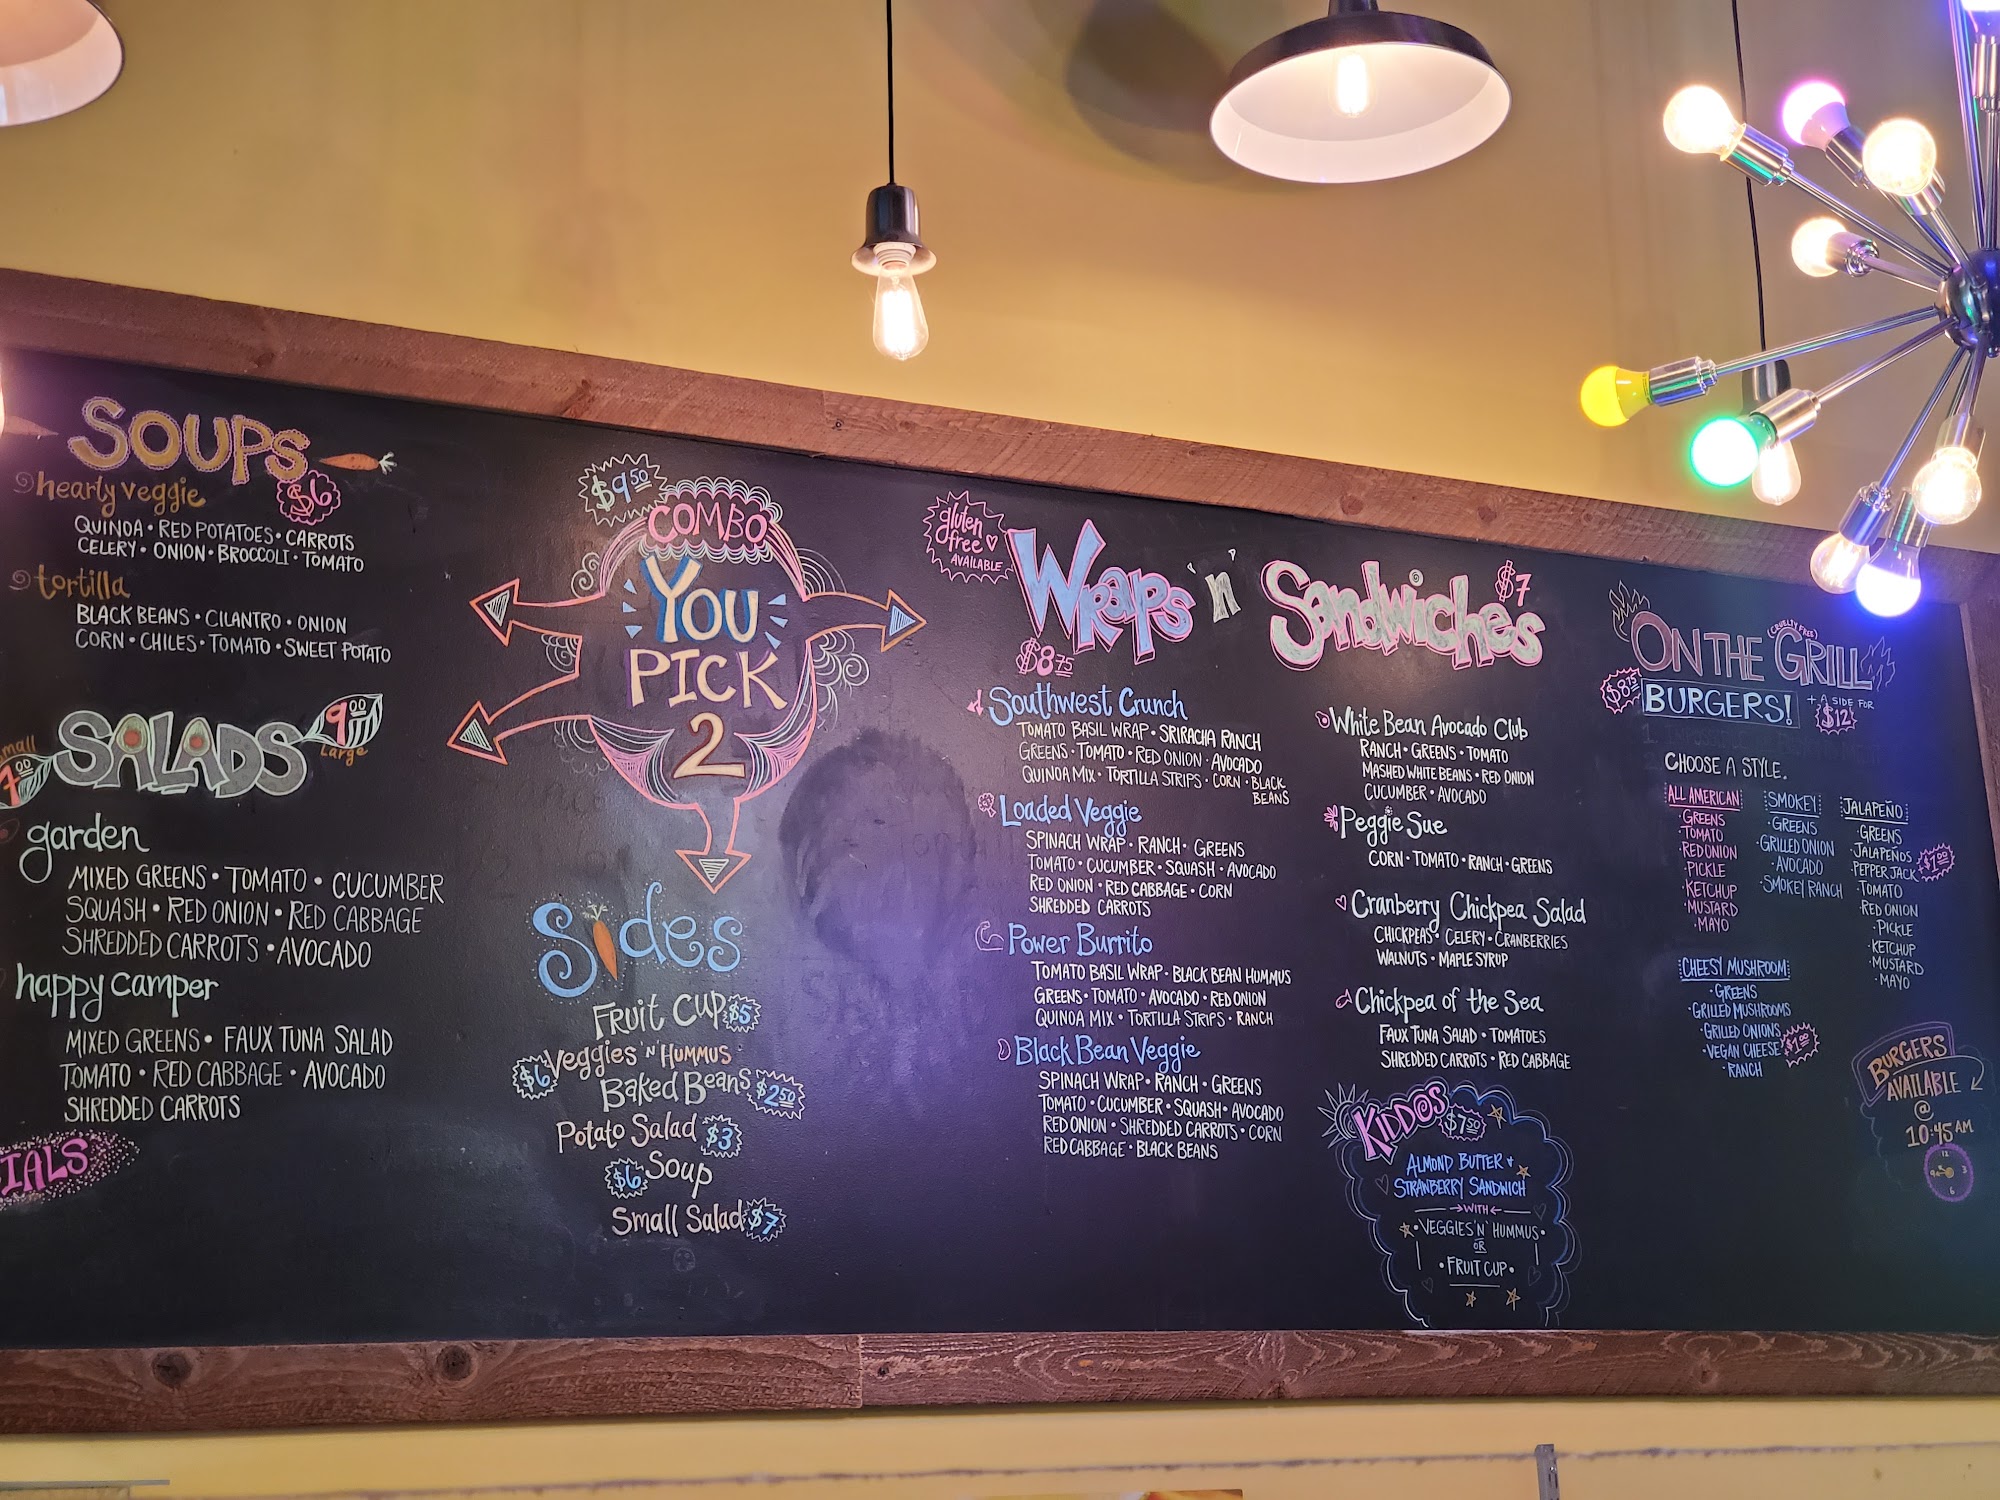 SOUPS
$6
hearty veggie
QUINOA • RED POTATOES • CARROTS
CELERY • ONION • BROCCOLI • TOMATO
tortilla
BLACK BEANS • CILANTRO • ONION
CORN • CHILES • TOMATO • SWEET POTATO
SALADS
small
7.00
9.00
Large
garden
MIXED GREENS • TOMATO • CUCUMBER
SQUASH • RED ONION • RED CABBAGE
SHREDDED CARROTS • AVOCADO
happy camper
MIXED GREENS • FAUX TUNA SALAD
TOMATO • RED CABBAGE • AVOCADO
SHREDDED CARROTS
IALS
$9.50
COMBO
YOU
PICK
2
Sides
FRUIT CUP $5
$6 VEGGIES 'N' HUMMUS
BAKED BEANS $2.50
POTATO SALAD $3
$6 SOUP
SMALL SALAD $7
gluten
free
AVAILABLE
Wraps 'n' Sandwiches
$8.75
$7
Southwest Crunch
TOMATO BASIL WRAP • SRIRACHA RANCH
GREENS • TOMATO • RED ONION • AVOCADO
QUINOA MIX • TORTILLA STRIPS • CORN • BLACK
BEANS
Loaded Veggie
SPINACH WRAP • RANCH • GREENS
TOMATO • CUCUMBER • SQUASH • AVOCADO
RED ONION • RED CABBAGE • CORN
SHREDDED CARROTS
Power Burrito
TOMATO BASIL WRAP • BLACK BEAN HUMMUS
GREENS • TOMATO • AVOCADO • RED ONION
QUINOA MIX • TORTILLA STRIPS • RANCH
Black Bean Veggie
SPINACH WRAP • RANCH • GREENS
TOMATO • CUCUMBER • SQUASH • AVOCADO
RED ONION • SHREDDED CARROTS • CORN
RED CABBAGE • BLACK BEANS
White Bean Avocado Club
RANCH • GREENS • TOMATO
MASHED WHITE BEANS • RED ONION
CUCUMBER • AVOCADO
Peggie Sue
CORN • TOMATO • RANCH • GREENS
Cranberry Chickpea Salad
CHICKPEAS • CELERY • CRANBERRIES
WALNUTS • MAPLE SYRUP
Chickpea of the Sea
FAUX TUNA SALAD • TOMATOES
SHREDDED CARROTS • RED CABBAGE
KIDDOS $7.50
ALMOND BUTTER +
STRAWBERRY SANDWICH
WITH
• VEGGIES 'N' HUMMUS •
OR
• FRUIT CUP •
(CRUELTY FREE)
ON THE GRILL
$8.75
BURGERS!
+ A SIDE FOR
$12
CHOOSE A STYLE.
ALL AMERICAN
• GREENS
• TOMATO
• RED ONION
• PICKLE
• KETCHUP
• MUSTARD
• MAYO
SMOKEY
• GREENS
• GRILLED ONION
• AVOCADO
• SMOKEY RANCH
JALAPEÑO
• GREENS
• JALAPEÑOS
• PEPPER JACK +$1.00
• TOMATO
• RED ONION
• PICKLE
• KETCHUP
• MUSTARD
• MAYO
CHEESY MUSHROOM
• GREENS
• GRILLED MUSHROOMS
• GRILLED ONIONS
• VEGAN CHEESE +$1.00
• RANCH
BURGERS
AVAILABLE
@
10:45 AM
12
9 3
6